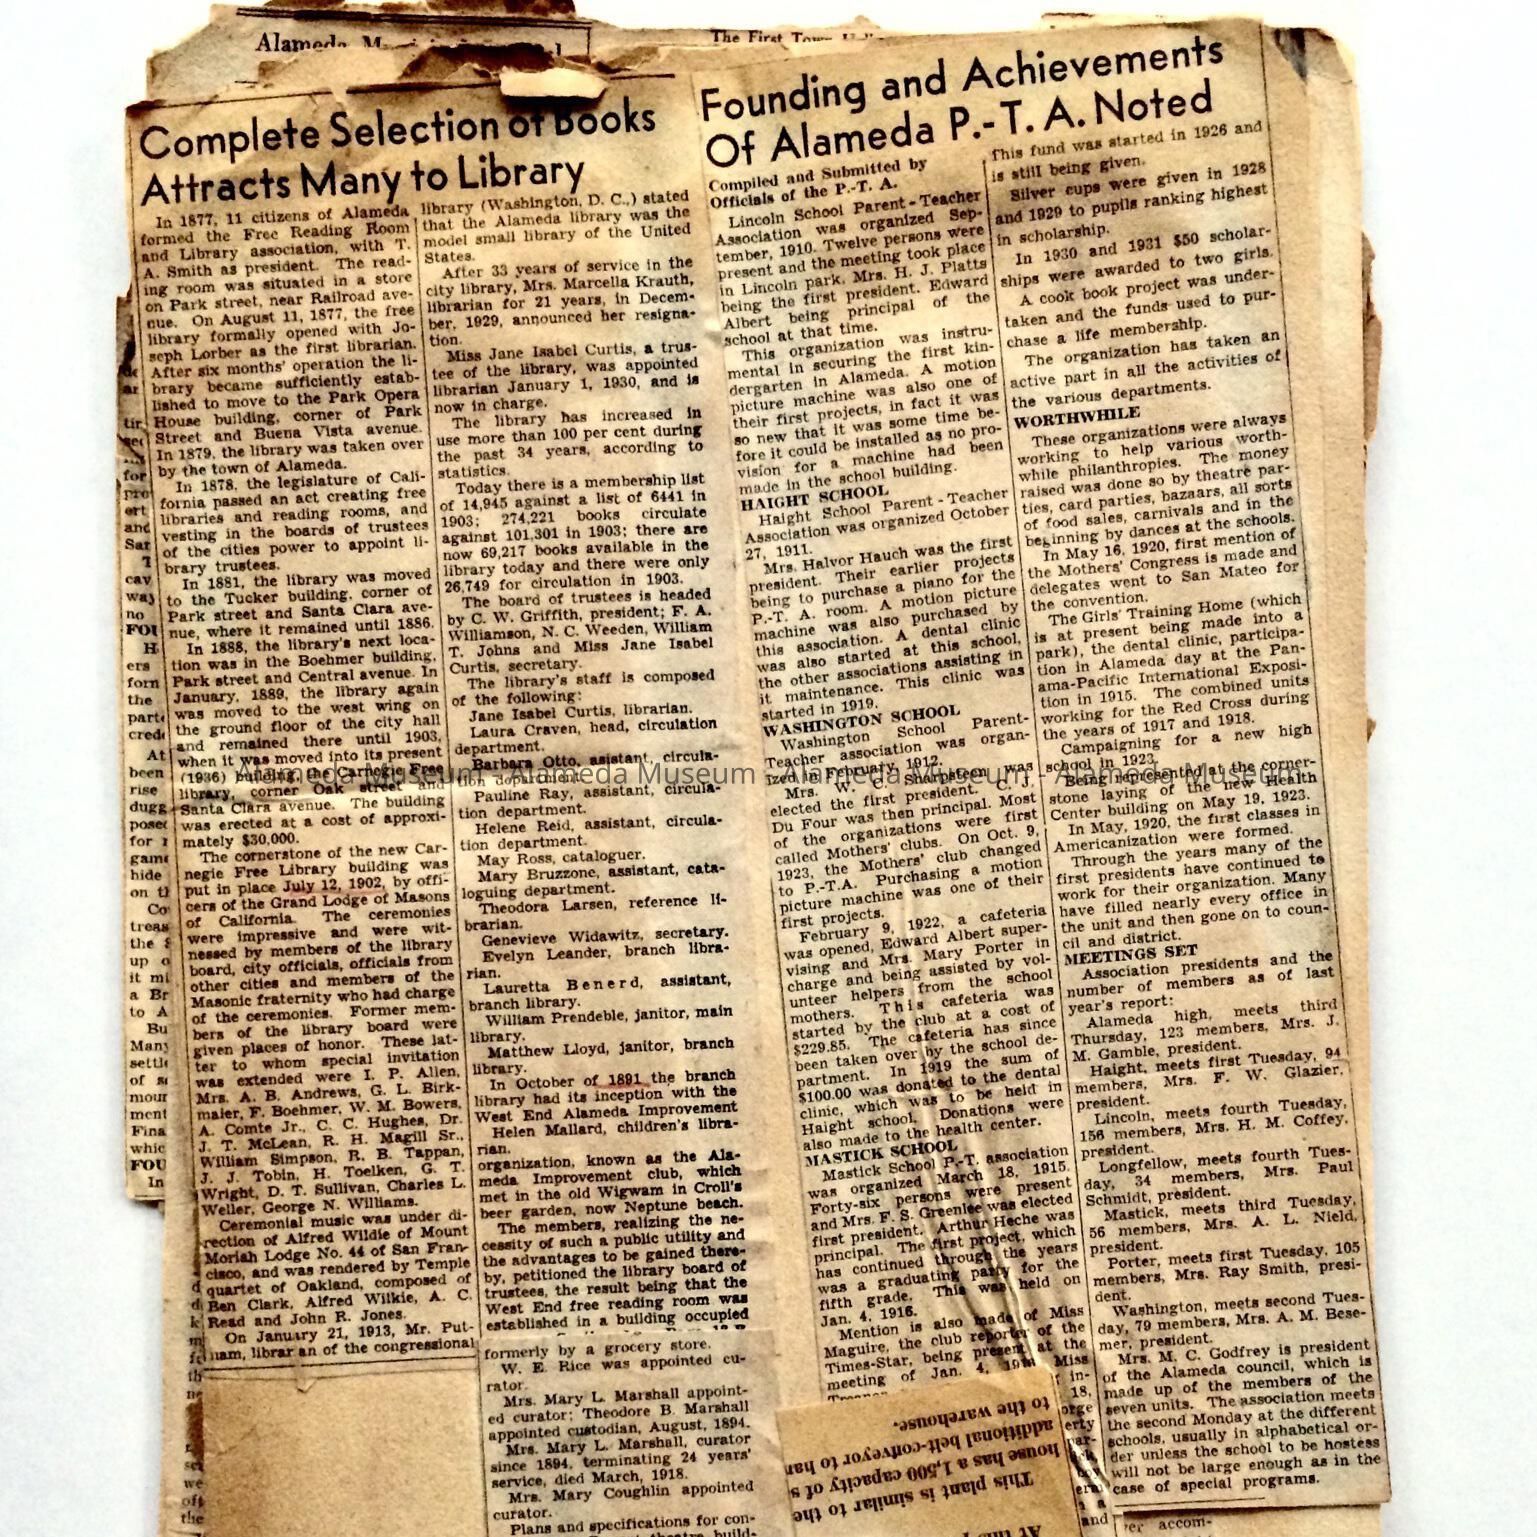 The First Town
Complete Selection of Books
Attracts Many to Library
In 1877, 11 citizens of Alameda
formed the Free Reading Room
and Library association, with T.
A. Smith as president. The read-
ing room was situated in a store
on Park street, near Railroad ave-
nue. On August 11, 1877, the free
library formally opened with Jo-
seph Lorber as the first librarian.
After six months' operation the li-
brary became sufficiently estab-
lished to move to the Park Opera
House building, corner of Park
Street and Buena Vista avenue.
In 1879, the library was taken over
by the town of Alameda.
In 1878, the legislature of Cali-
fornia passed an act creating free
libraries and reading rooms, and
vesting in the boards of trustees
of the cities power to appoint li-
brary trustees.
In 1881, the library was moved
to the Tucker building, corner of
Park street and Santa Clara ave-
nue, where it remained until 1886.
In 1888, the library's next loca-
tion was in the Boehmer building,
Park street and Central avenue. In
January, 1889, the library again
was moved to the west wing on
the ground floor of the city hall
and remained there until 1903,
when it was moved into its present
(1936) building, the Carnegie Free
library, corner Oak street and
Santa Clara avenue. The building
was erected at a cost of approxi-
mately $30,000.
The cornerstone of the new Car-
negie Free Library building was
put in place July 12, 1902, by offi-
cers of the Grand Lodge of Masons
of California. The ceremonies
were impressive and were wit-
nessed by members of the library
board, city officials, officials from
other cities and members of the
Masonic fraternity who had charge
of the ceremonies. Former mem-
bers of the library board were
given places of honor. These lat-
ter to whom special invitation
was extended were I. P. Allen,
Mrs. A. B. Andrews, G. L. Birk-
maier, F. Boehmer, W. M. Bowers,
A. Comte Jr., C. C. Hughes, Dr.
J. T. McLean, R. H. Magill Sr.,
William Simpson, R. B. Tappan,
J. J. Tobin, H. Toelken, G. T.
Wright, D. T. Sullivan, Charles L.
Weller, George N. Williams.
Ceremonial music was under di-
rection of Alfred Wildie of Mount
Moriah Lodge No. 44 of San Fran-
cisco, and was rendered by Temple
quartet of Oakland, composed of
Ben Clark, Alfred Wilkie, A. C.
Read and John R. Jones.
On January 21, 1913, Mr. Put-
nam, librarian of the congressional
library (Washington, D. C.,) stated
that the Alameda library was the
model small library of the United
States.
After 33 years of service in the
city library, Mrs. Marcella Krauth,
librarian for 21 years, in Decem-
ber, 1929, announced her resigna-
tion.
Miss Jane Isabel Curtis, a trus-
tee of the library, was appointed
librarian January 1, 1930, and is
now in charge.
The library has increased in
use more than 100 per cent during
the past 34 years, according to
statistics.
Today there is a membership list
of 14,945 against a list of 6441 in
1903; 274,221 books circulate
against 101,301 in 1903; there are
now 69,217 books available in the
library today and there were only
26,749 for circulation in 1903.
The board of trustees is headed
by C. W. Griffith, president; F. A.
Williamson, N. C. Weeden, William
T. Johns and Miss Jane Isabel
Curtis, secretary.
The library's staff is composed
of the following:
Jane Isabel Curtis, librarian.
Laura Craven, head, circulation
department.
Barbara Otto, asistant, circula-
tion department.
Pauline Ray, assistant, circula-
tion department.
Helene Reid, assistant, circula-
tion department.
May Ross, cataloguer.
Mary Bruzzone, assistant, cata-
loguing department.
Theodora Larsen, reference li-
brarian.
Genevieve Widawitz, secretary.
Evelyn Leander, branch libra-
rian.
Lauretta Benerd, assistant,
branch library.
William Prendeble, janitor, main
library.
Matthew Lloyd, janitor, branch
library.
In October of 1891 the branch
library had its inception with the
West End Alameda Improvement
Helen Mallard, children's libra-
rian.
organization, known as the Ala-
meda Improvement club, which
met in the old Wigwam in Croll's
beer garden, now Neptune beach.
The members, realizing the ne-
cessity of such a public utility and
the advantages to be gained there-
by, petitioned the library board of
trustees, the result being that the
West End free reading room was
established in a building occupied
formerly by a grocery store.
W. E. Rice was appointed cu-
rator.
Mrs. Mary L. Marshall appoint-
ed curator; Theodore B. Marshall
appointed custodian, August, 1894.
Mrs. Mary L. Marshall, curator
since 1894, terminating 24 years'
service, died March, 1918.
Mrs. Mary Coughlin appointed
curator.
Plans and specifications for con-
Founding and Achievements
Of Alameda P.-T. A. Noted
Compiled and Submitted by
Officials of the P.-T. A.
Lincoln School Parent-Teacher
Association was organized Sep-
tember, 1910. Twelve persons were
present and the meeting took place
in Lincoln park, Mrs. H. J. Platts
being the first president. Edward
Albert being principal of the
school at that time.
This organization was instru-
mental in securing the first kin-
dergarten in Alameda. A motion
picture machine was also one of
their first projects, in fact it was
so new that it was some time be-
fore it could be installed as no pro-
vision for a machine had been
made in the school building.
HAIGHT SCHOOL
Haight School Parent-Teacher
Association was organized October
27, 1911.
Mrs. Halvor Hauch was the first
president. Their earlier projects
being to purchase a piano for the
P.-T. A. room. A motion picture
machine was also purchased by
this association. A dental clinic
was also started at this school,
the other associations assisting in
it maintenance. This clinic was
started in 1919.
WASHINGTON SCHOOL
Washington School Parent-
Teacher association was organ-
ized February, 1912.
Mrs. W. C. Sharpsteen was
elected the first president. C. J.
Du Four was then principal. Most
of the organizations were first
called Mothers' clubs. On Oct. 9,
1923, the Mothers' club changed
to P.-T.A. Purchasing a motion
picture machine was one of their
first projects.
February 9, 1922, a cafeteria
was opened, Edward Albert super-
vising and Mrs. Mary Porter in
charge and being assisted by vol-
unteer helpers from the school
mothers. This cafeteria was
started by the club at a cost of
$229.85. The cafeteria has since
been taken over by the school de-
partment. In 1919 the sum of
$100.00 was donated to the dental
clinic, which was to be held in
Haight school. Donations were
also made to the health center.
MASTICK SCHOOL
Mastick School P.-T. association
was organized March 18, 1915.
Forty-six persons were present
and Mrs. F. S. Greenlee was elected
first president. Arthur Heche was
principal. The first project, which
has continued through the years
was a graduating party for the
fifth grade. This was held on
Jan. 4, 1916.
Mention is also made of Miss
Maguire, the club reporter of the
Times-Star, being present at the
meeting of Jan. 4, Miss
This fund was started in 1926 and
is still being given.
Silver cups were given in 1928
and 1929 to pupils ranking highest
in scholarship.
In 1930 and 1931 $50 scholar-
ships were awarded to two girls.
A cook book project was under-
taken and the funds used to pur-
chase a life membership.
The organization has taken an
active part in all the activities of
the various departments.
WORTHWHILE
These organizations were always
working to help various worth-
while philanthropies. The money
raised was done so by theatre par-
ties, card parties, bazaars, all sorts
of food sales, carnivals and in the
beginning by dances at the schools.
In May 16, 1920, first mention of
the Mothers' Congress is made and
delegates went to San Mateo for
the convention.
The Girls' Training Home (which
is at present being made into a
park), the dental clinic, participa-
tion in Alameda day at the Pan-
ama-Pacific International Exposi-
tion in 1915. The combined units
working for the Red Cross during
the years of 1917 and 1918.
Campaigning for a new high
school in 1923.
Being represented at the corner-
stone laying of the new Health
Center building on May 19, 1923.
In May, 1920, the first classes in
Americanization were formed.
Through the years many of the
first presidents have continued to
work for their organization. Many
have filled nearly every office in
the unit and then gone on to coun-
cil and district.
MEETINGS SET
Association presidents and the
number of members as of last
year's report:
Alameda high, meets third
Thursday, 123 members, Mrs. J.
M. Gamble, president.
Haight, meets first Tuesday, 94
members, Mrs. F. W. Glazier,
president.
Lincoln, meets fourth Tuesday,
156 members, Mrs. H. M. Coffey,
president.
Longfellow, meets fourth Tues-
day, 34 members, Mrs. Paul
Schmidt, president.
Mastick, meets third Tuesday,
56 members, Mrs. A. L. Nield,
president.
Porter, meets first Tuesday, 105
members, Mrs. Ray Smith, presi-
dent.
Washington, meets second Tues-
day, 79 members, Mrs. A. M. Bese-
mer, president.
Mrs. M. C. Godfrey is president
of the Alameda council, which is
made up of the members of the
seven units. The association meets
the second Monday at the different
schools, usually in alphabetical or-
der unless the school to be hostess
will not be large enough as in the
case of special programs.
This plant is similar to the
house has a 1,500 capacity of s
additional belt-conveyor to har
to the warehouse.
Alameda Museum - Alameda Museum - Alameda Museum - Alameda Museum